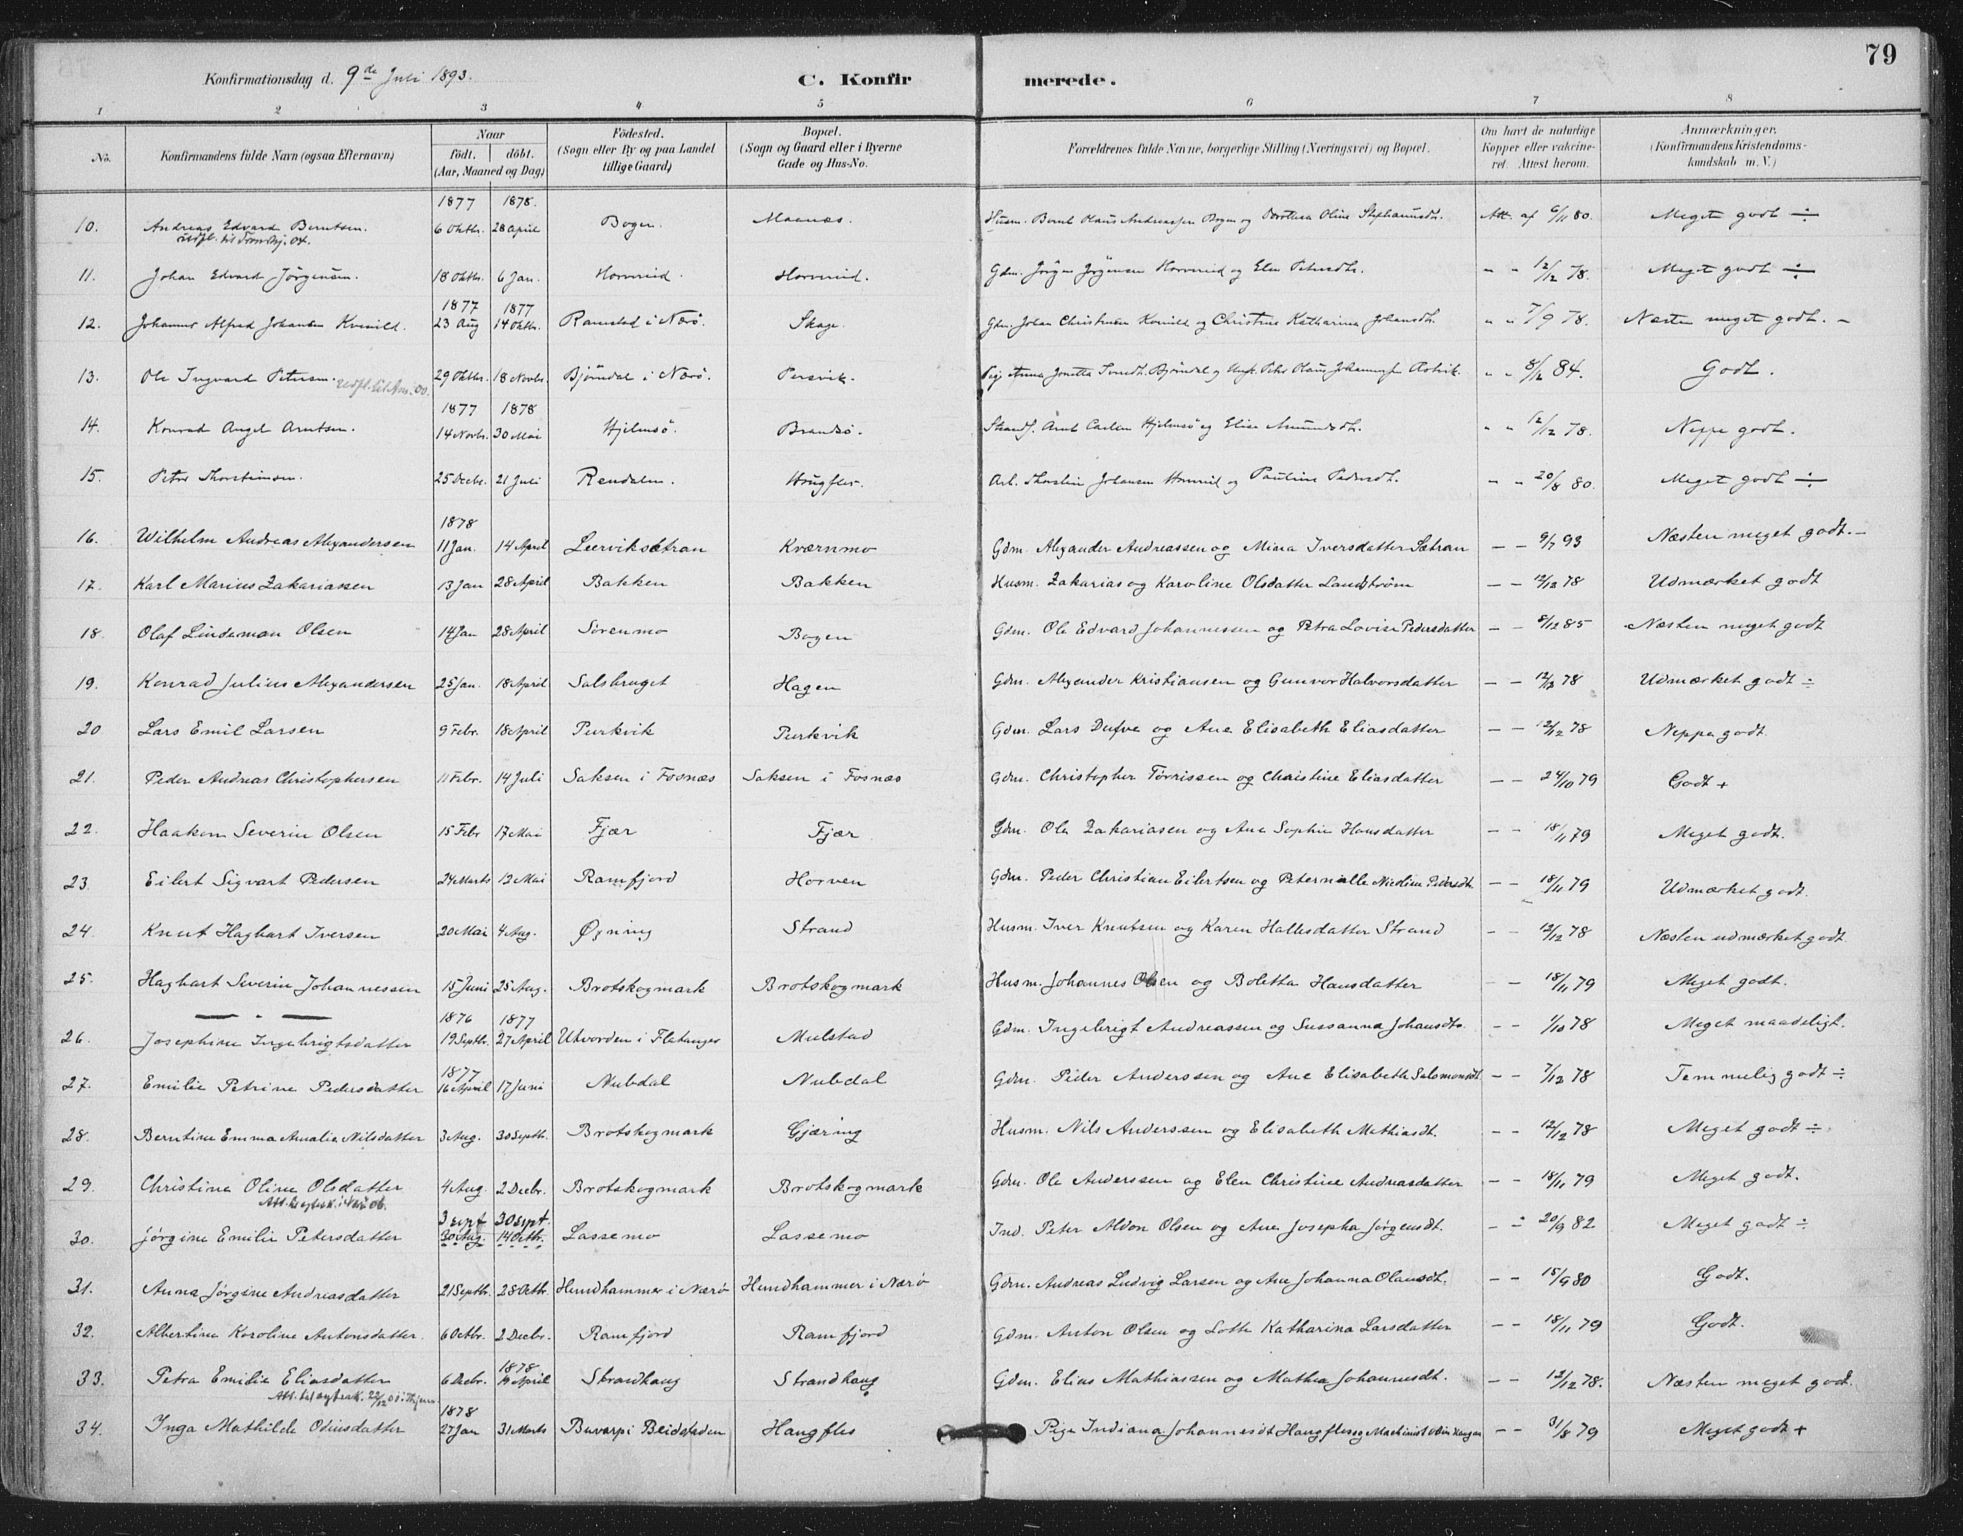 79
Konfirmationsdag d. 9de Juli 1893. C. Konfirmerede.
1 2 3 4 5 6 7 8
No. Konfirmandens fulde Navn (ogsaa Efternavn) Naar födt. döbt. (Aar, Maaned og Dag) Födested. (Sogn eller By og paa Landet tillige Gaard) Bopæl. (Sogn og Gaard eller i Byerne Gade og Hus-No. Forældrenes fulde Navne, borgerlige Stilling (Næringsvei) og Bopæl. Om havt de naturlige Kopper eller vakcineret. Attest herom. Anmærkninger. (Konfirmandens Kristendomskundskab m. V.)
1877 1878.
10. Andreas Edvard Berntsen. 6 Oktbr. 28 April Bogen. Maanæs. Husm. Bernt Olaus Andreassen Bogen og Dorothea Oline Stephanusdt. Att. af 6/11 80. Meget godt ÷
11. Johan Edvard Jörgensen. 18 Oktbr. 6 Jan. Horvereid. Horvereid. Gdm. Jörgen Jörgensen Horvereid og Elen Petersdt. " " 12/12 78. Meget godt ÷
1877 1877
12. Johannes Alfred Johansen Kveisild. 23 Aug 14 Oktbr. Ramstad i Nærö. Skage. Gdm. Johan Christensen og Christine Katharina Johansdt. " " 7/9 78. Næsten meget godt. -
13. Ole Ingvard Petersen. 29 Oktbr. 18 Novbr. Björndal i Nærö. Persvik. Pige Anna Jonetta Björndal og Ungk. Peter Olaus " " 8/12 84. Godt.
1877 1878
14. Konrad Angel Arntsen. 14 Novbr. 30 Mai Hjelmsö. Brandsö. Strands. Arnt Carlsen Hjelmsö og Elise Amundsdt. " " 12/12 78. Neppe godt.
15. Peter Thorsteinsen. 25 Decbr. 21 Juli Rendalen. Hougfles. Arb. Thorstein Johansen Horvereid og Pauline Pedersdt. " " 20/8 80. Meget godt ÷
1878
16. Wilhelm Andreas Alexandersen 11 Jan. 14 April Leerviksætran Kværnmo Gdm. Alexander Andreassen og Mina Iversdatter Sætran - - 9/7 93 Næsten meget godt. -
17. Karl Marius Zakariassen 13 Jan 28 April Bakken Bakken Husm. Zakarias og Karoline Olsdatter Landstrøm - - 12/12 78 Udmærket godt
18. Olaf Lindeman Olsen 14 Jan 28 April Sörenmo Bogen Gdm. Ole Edvard Johannessen og Petra Lovise Pedersdatter - - 8/12 85 Næsten meget godt
19. Konrad Julius Alexandersen 25 Jan. 18 April Salsbruget Hagen Gdm. Alexander Kristiansen og Gunvor Halvorsdatter - - 12/12 78 Udmærket godt ÷
20 Lars Emil Larsen 9 Febr. 18 April Purkvik Purkvik Gdm. Lars Dufva og Ane Elisabeth Eliasdatter - - 12/12 78 Neppe godt.
21. Peder Andreas Christophersen 11 Febr. 14 Juli Saksen i Fosnæs Saksen i Fosnæs Gdm. Christopher Törrissen og Christine Eliasdatter - - 24/10 79 Godt +
22. Haakon Severin Olsen 15 Febr 17 Mai Fjær Fjær Gdm. Ole Zakariasen og Ane Sophie Hansdatter - - 18/11 79 Meget godt.
23 Eilert Sigvart Pedersen 24 Marts 13 Mai Ramfjord Horven Gdm. Peder Christian Eilertsen og Peternalle Nicoline Pedersdt. - - 18/11 79 Udmærket godt.
24. Knut Hagbart Iversen 20 Mai 4 Aug. Øyning Strand Husm. Iver Knutsen og Karen Hallesdatter Strand - - 12/12 78 Næsten udmærket godt
25. Hagbart Severin Johannessen 15 Juni 25 Aug. Brotskogmark Brotskogmark Husm. Johannes Olsen og Boletta Hansdatter - - 18/11 79 Meget godt.
1876 1877
26. Josephine Ingebrigtsdatter 19 Septbr. 27 April Utvorden i Flatanger Mulstad Gdm. Ingebrigt Andreassen og Sussanna Johansdt. - - 1/10 78 Meget maadeligt.
1877
27. Emilie Petrine Pedersdatter 16 April 17 Juni Nubdal Nubdal Gdm. Peder Anderssen og Ane Elisabeth Salomonsdt - - 7/12 78 Temmelig godt ÷
28. Berntine Emma Amalie Nilsdatter 3 Aug. 30 Septbr. Brotskogmark Gjæring Husm. Nils Anderssen og Elisabeth Mathiasdt. - - 12/12 78 Meget godt ÷
29. Christina Oline Olsdatter 4 Aug. 2 Decbr. Brotskogmark Brotskogmark Gdm. Ole Anderssen og Elen Christine Andreasdatter - - 18/11 79 Meget godt.
3 sept 30 sept.
30. Jørgine Emilie Petersdatter 30 Aug. 14 Octbr. Lassemo Lassemo Ind. Peter Aldon Olsen og Ane Josepha Jørgensdt. - - 20/9 82 Meget godt ÷
31. Anna Jørgine Andreasdatter 21 Septbr. 28 Octbr. Hundhammer i Nærö Hundhammer i Nærö Gdm. Andreas Ludvig Larsen og Ane Johanna Olausdt. - - 15/9 80 Godt.
32. Albertine Karoline Antonsdatter. 6 Octbr. 2 Decbr. Ramfjord Ramfjord Gdm. Anton Olsen og Lotte Katharina Larsdatter - - 18/11 79 Godt.
1878
33. Petra Emilie Eliasdatter 6 Decbr. April Strandhaug Strandhaug Gdm. Elias Mathiassen og Mathea Johannesdt. - - 12/12 78. Næsten meget godt.
1878
34. Inga Mathilde Odinsdatter 27 Jan 31 Marts Buvarp i Beidstaden Haugfles Pige Indiana Johannesdt Haugfles og Machinist Odin Haugan - - 31/8 79 Meget godt +